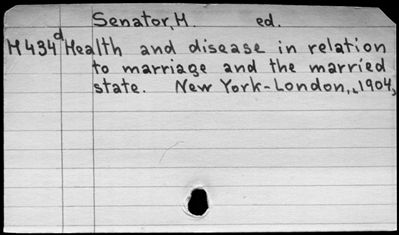 Senator, H. ed.
M434d Health and disease in relation
to marriage and the married
state. New York-London, 1904,